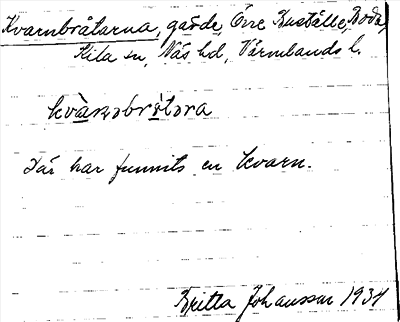 Kvarnbråtarna, gärde, Övre Buställe, Boda,
Kila sn, Näs hd, Värmlands l.
kvànəbrò̀təra
Där har funnits en kvarn.
Britta Johansson 1934